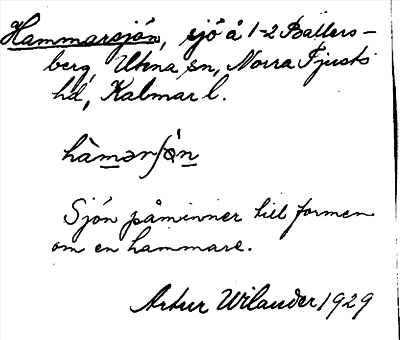 Hammarsjön, sjö å 1-2 Bällers-
berg, Ukna sn, Norra Tjusts
hd, Kalmar l.
hàmarʃön
Sjön påminner till formen
om en hammare.
Artur Wilander 1929